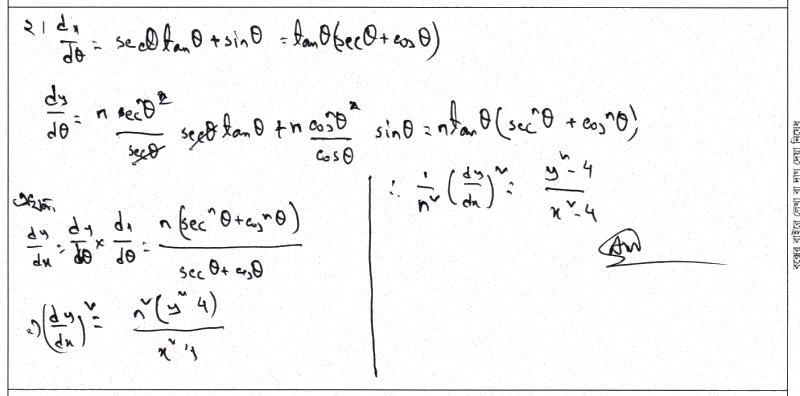 ২। dx/dθ = secθ tanθ + sinθ = tanθ(secθ + cosθ)
dy/dθ = n secⁿθ/secθ secθ tanθ + n cosⁿθ/cosθ sinθ = n tanθ (secⁿθ + cosⁿθ)
dy/dx = dy/dθ × dx/dθ = n(secⁿθ + cosⁿθ)/(secθ + cosθ)
⇒ (dy/dx)² = n²(y² 4)/(x² 4)
∴ 1/n² (dy/dx)² = (y² - 4)/(x² - 4)
Ans
বক্সের বাইরে লেখা বা দাগ দেয়া নিষেধ